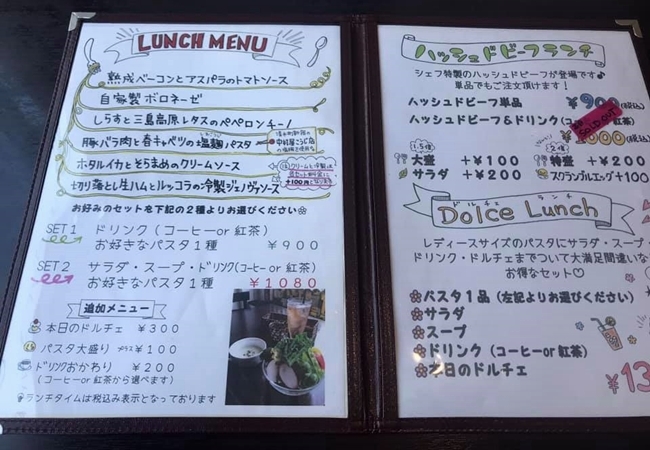 LUNCH MENU
熟成ベーコンとアスパラのトマトソース
自家製ボロネーゼ
しらすと三島高原レタスのペペロンチーノ
豚バラ肉と春キャベツの塩麹パスタ
ホタルイカとそらまめのクリームソース
切り落とし生ハムとルッコラの冷製ジェノヴァソース
お好みのセットを下記の2種よりお選びください
SET 1 ドリンク(コーヒーor 紅茶)
お好きなパスタ1種 ¥900
SET 2 サラダ・スープ・ドリンク(コーヒー or 紅茶)
お好きなパスタ1種 ¥1080
追加メニュー
本日のドルチェ ¥300
パスタ大盛り プラス ¥100
ドリンクおかわり ¥200
(コーヒーor 紅茶から選べます)
ランチタイムは税込み表示となっております
ハッシュドビーフランチ
シェフ特製のハッシュドビーフが登場です♪
単品でもご注文頂けます!
ハッシュドビーフ単品 ¥900(税込)
ハッシュドビーフ&ドリンク(コーヒー 紅茶)
SOLD OUT
000(税込)
1.5倍 2倍
大盛 +¥100 特盛 +¥200
サラダ +¥200 スクランブルエッグ+100
ドルチェ ランチ
Dolce Lunch
レディースサイズのパスタにサラダ・スープ・
ドリンク・ドルチェまでついて大満足間違いな
お得なセット♡
パスタ1品(左記よりお選びください)
サラダ
スープ
ドリンク(コーヒーor 紅茶)
本日のドルチェ
¥13